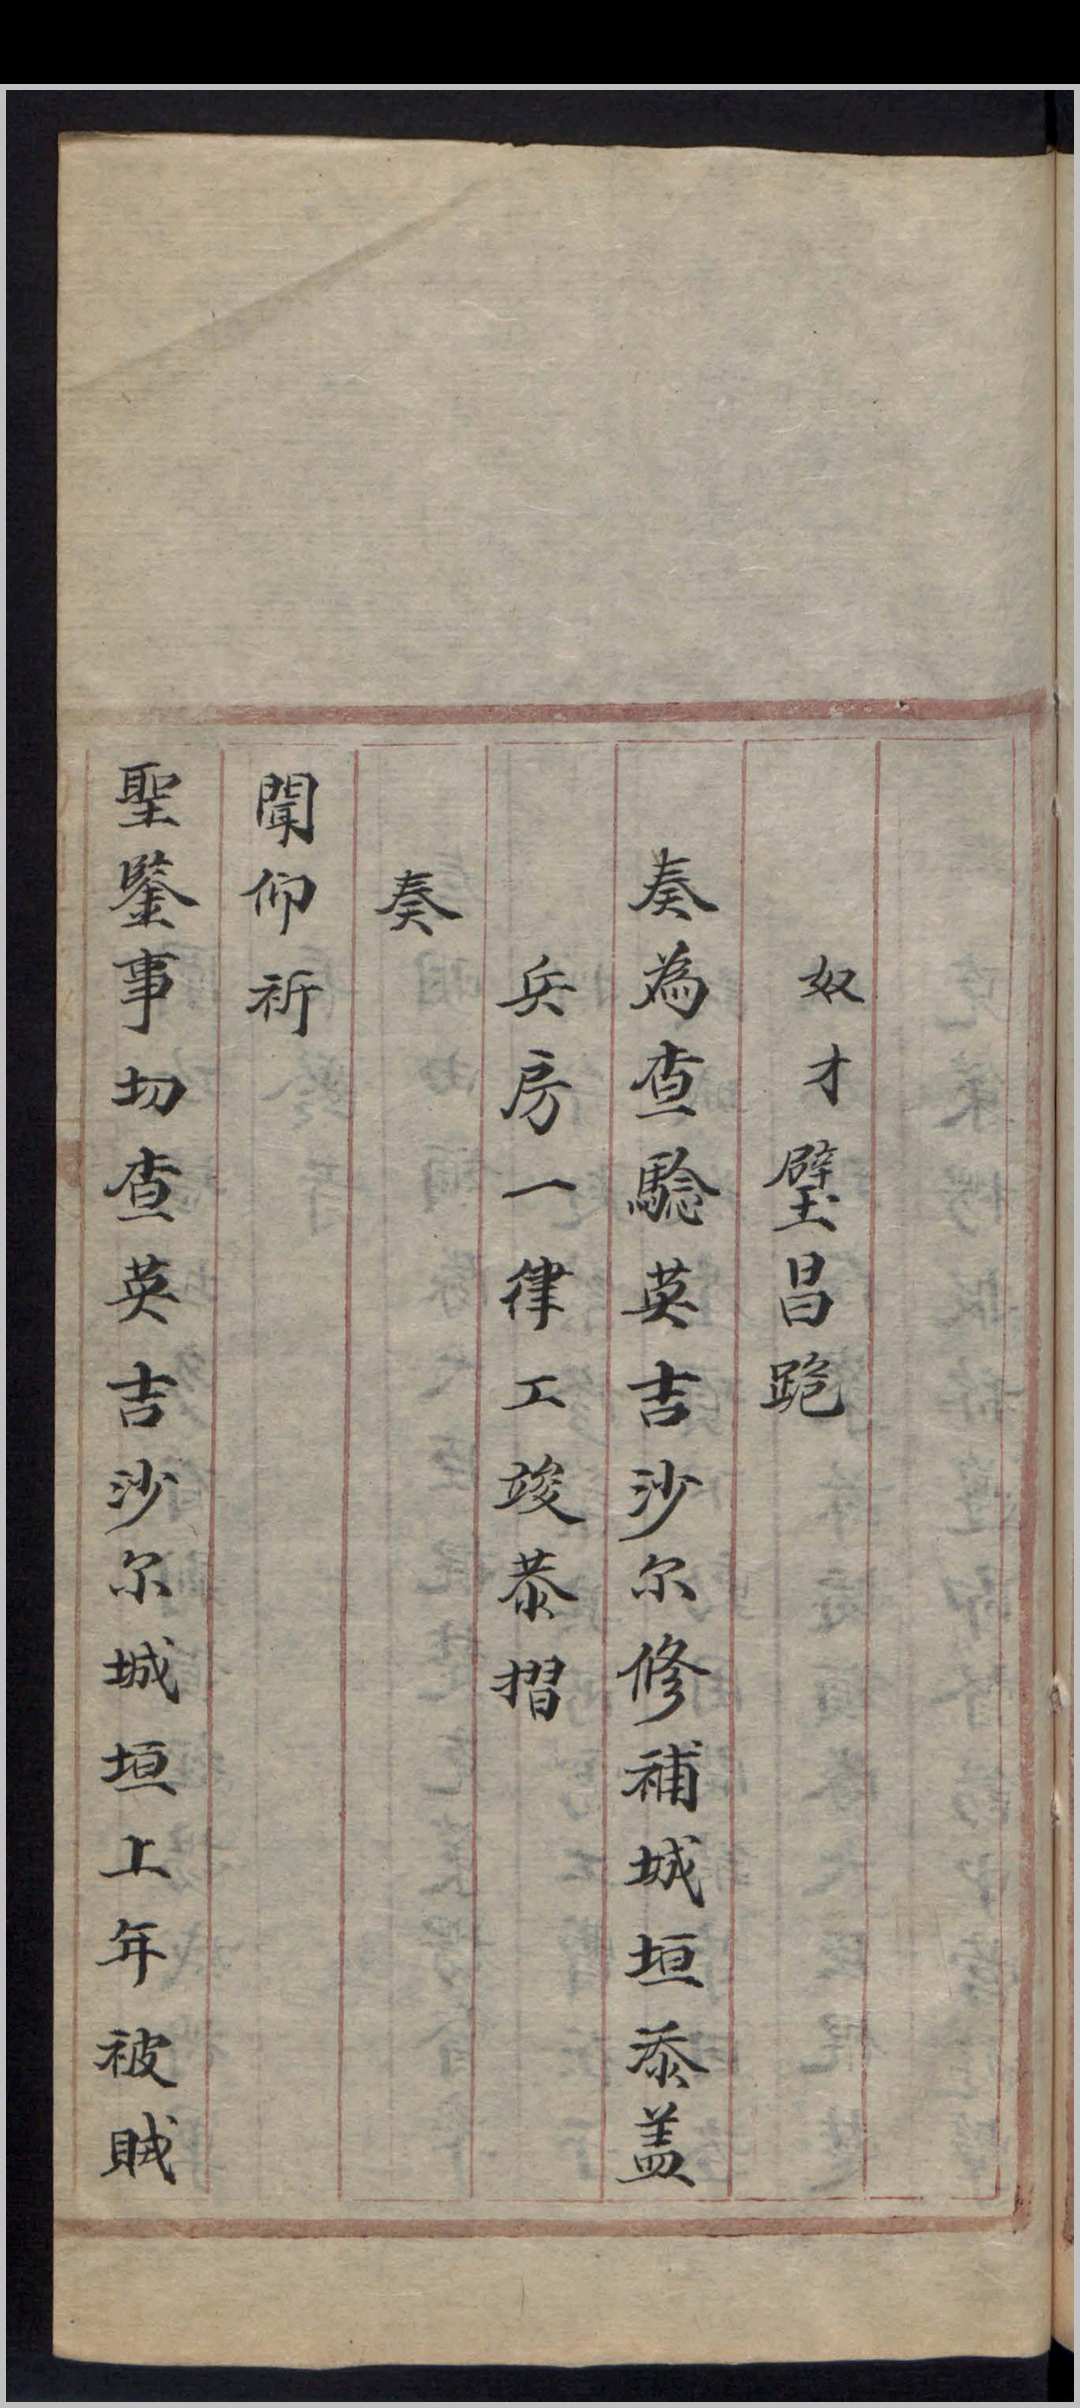 奴才璧昌跪
奏為查驗英吉沙尔修補城垣添盖
兵房一律工竣恭摺
奏
聞仰祈
聖鑒事切查英吉沙尔城垣上年被賊